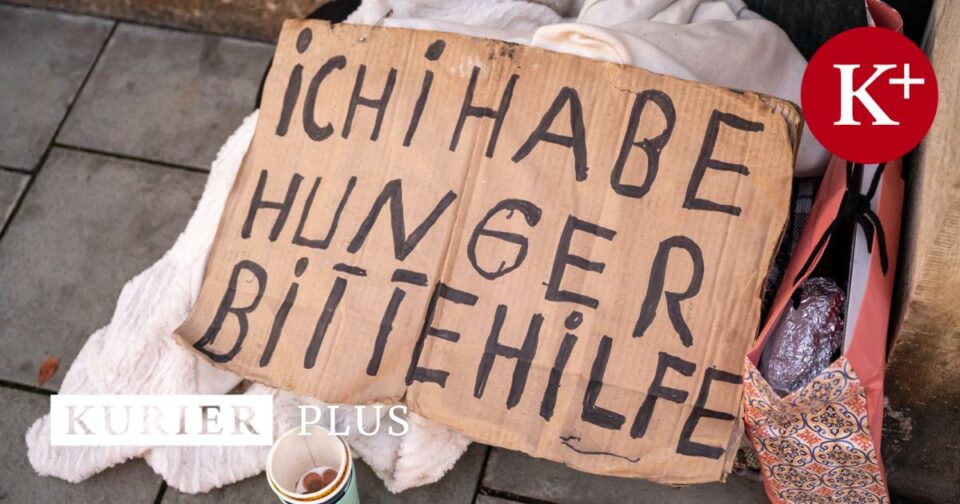 iCH i HABE
HUNGER
BiTTE HiLFE
K+
KURIER PLUS